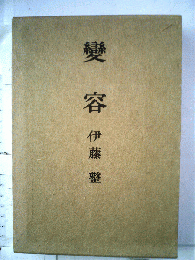 變容
伊藤整